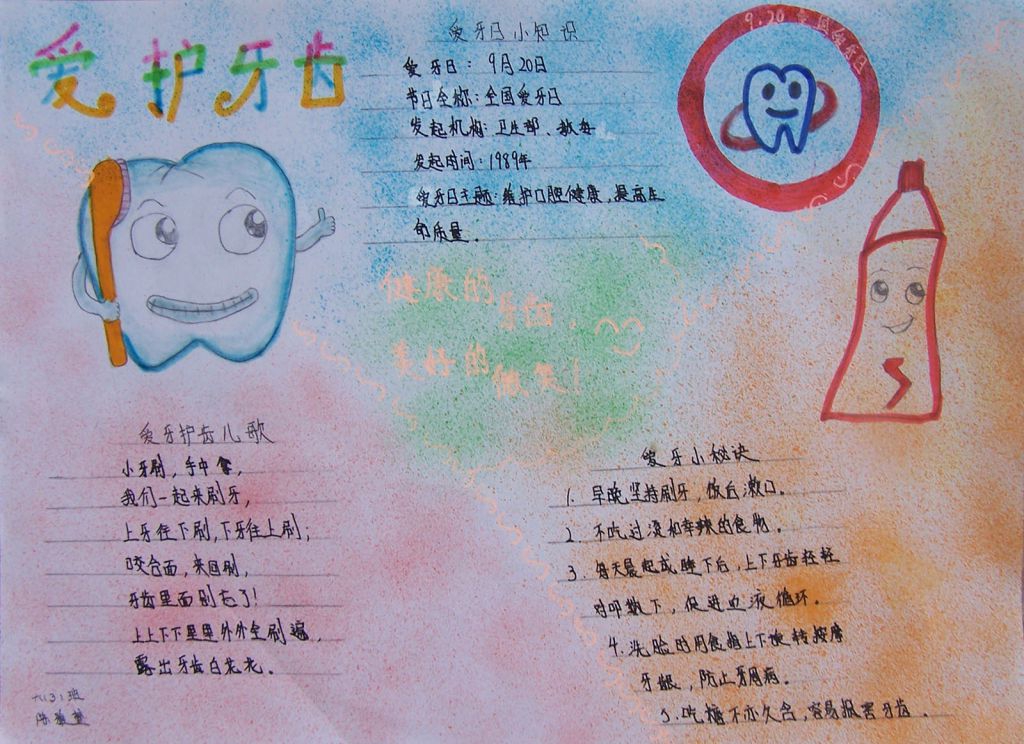 爱护牙齿
爱牙日小知识
爱牙日：9月20日
节日全称：全国爱牙日
发起机构：卫生部、教委
发起时间：1989年
爱牙日主题：维护口腔健康，提高生
命质量。
9.20全国爱牙日
健康的
牙齿，
美好的
微笑！
爱牙护齿儿歌
小牙刷，手中拿，
我们一起来刷牙，
上牙往下刷，下牙往上刷；
咬合面，来回刷，
牙齿里面别忘了！
上上下下里里外外全刷遍，
露出牙齿白光光。
六、3、班
爱牙小秘诀
1. 早晚坚持刷牙，饭后漱口。
2. 不吃过烫和辛辣的食物。
3. 每天晨起或睡下后，上下牙齿轻轻
对叩数下，促进血液循环。
4. 洗脸时用食指上下旋转按摩
牙龈，防止牙周病。
5. 吃糖不亦久含，容易损害牙齿。